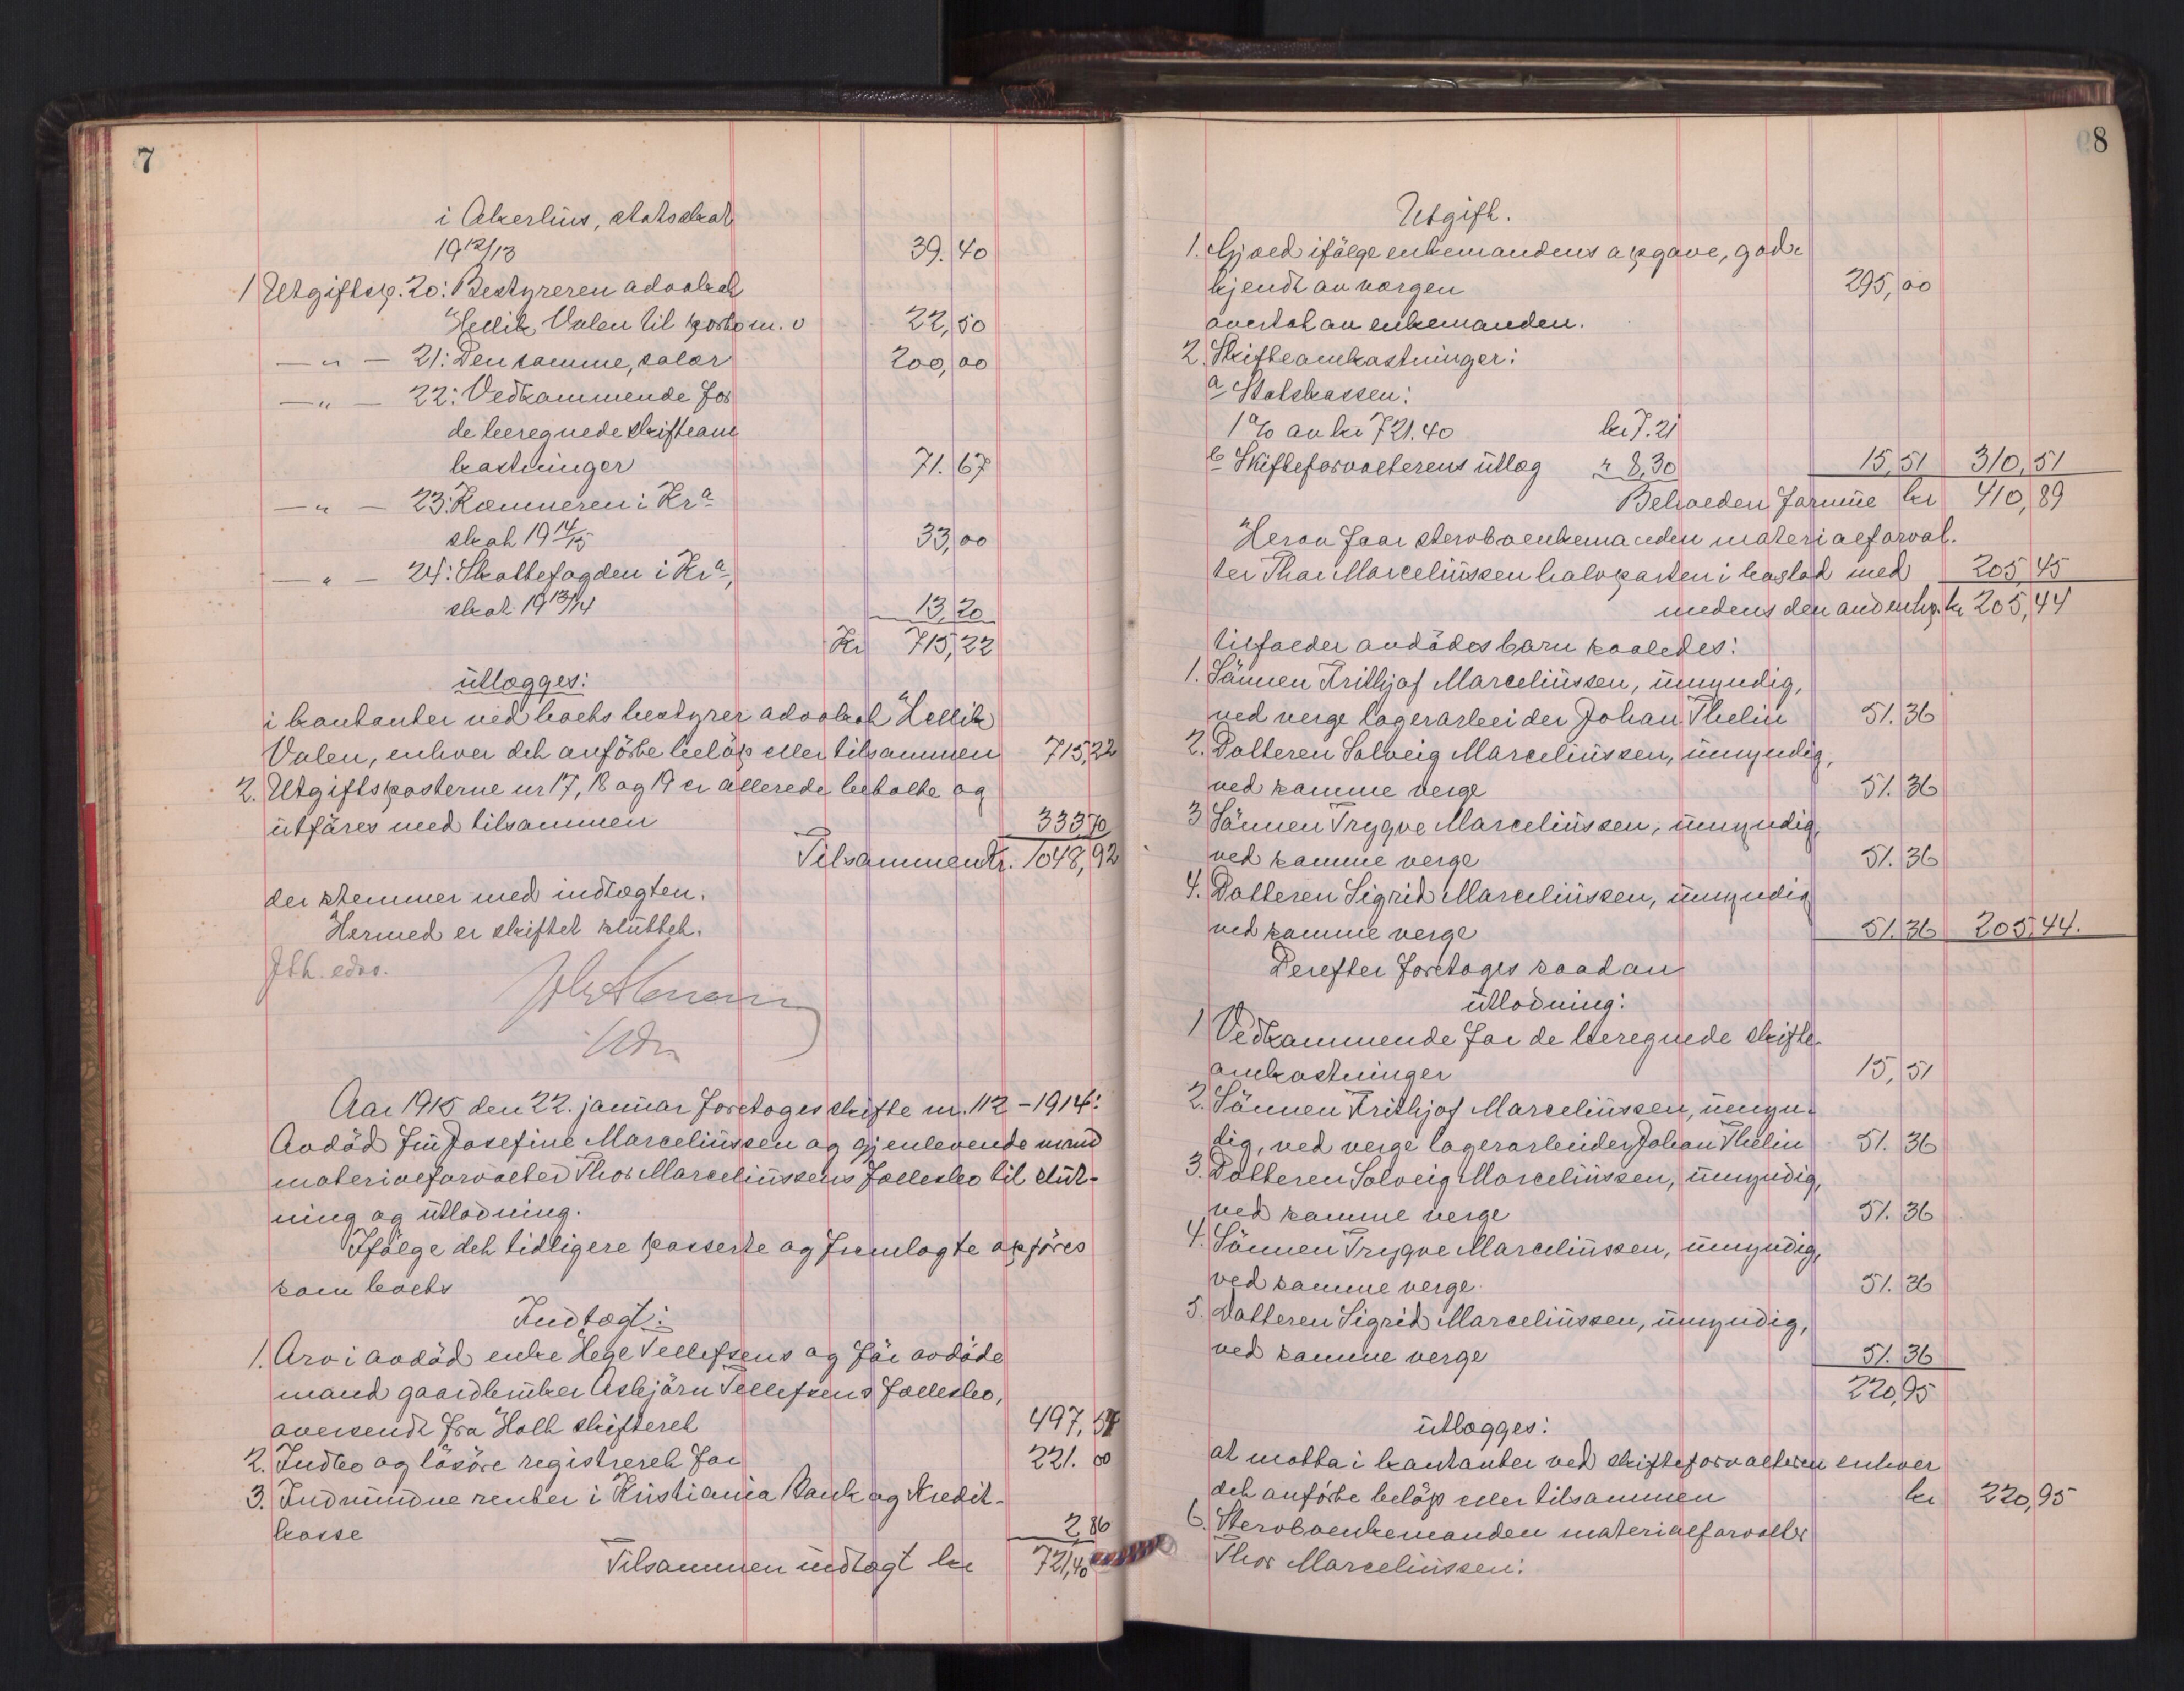 7
i Akerhus, statsskat
19 12/13 39.40
1 Utgiftsp. 20: Bestyreren advokat
Hellik Valen til porto m. v 22,50
—"— 21: Den samme, salær 200,00
—"— 22: Vedkommende for
de beregnede skifteom
kostninger 71.67
—"— 23: Kæmneren i Kr.a
skat 19 14/15 33,00
—"— 24: Skattefogden i Kr.a,
skat 19 13/14 13,20
Kr 715,22
utlægges:
i kontanter ved boets bestyrer advokat Hellik
Valen, enhver det anförte belöp eller tilsammen 715,22
2. Utgiftsposterne nr 17, 18 og 19 er allerede betalte og
utföres med tilsammen 333,70
Tilsammen Kr. 1048,92
der stemmer med indtægten.
Hermed er skiftet sluttet.
Aar 1915 den 22. januar foretoges skifte nr. 112 - 1914:
Avdöd fru Josefine Marceliussen og gjenlevende mand
materialforvalter Thor Marceliussens fællesbo til slut-
ning og utlodning.
Ifölge det tidligere passerte og fremlagte opföres
som boets
Indtægt:
1. Arv i avdöd enke Hege Tellefsens og för avdöde
mand gaardbruker Asbjörn Tellefsens fællesbo,
oversendt fra Holt skifteret 497,54
2. Indbo og lösöre registreret for 221.00
3. Indvundne renter i Kristiania Bank og Kredit-
kasse 2,86
Tilsammen indtægt kr 721,40
8
Utgift.
1. Gjæld ifölge enkemandens opgave, god-
kjendt av vergen 295,00
overtat av enkemanden.
2. Skifteomkostninger:
a Statskassen:
1 % av kr 721.40 kr 7.21
b Skifteforvalterens utlæg " 8,30 15,51 310,51
Beholden formue kr 410,89
Herav faar stervboenkemanden materialforval-
ter Thor Marceliussen halvparten i boslod med 205,45
medens den anden hp. kr 205,44
tilfalder avdödes barn saaledes:
1. Sönnen Frithjof Marceliussen, umyndig,
ved verge lagerarbeider Johan Thelin 51.36
2. Datteren Solveig Marceliussen, umyndig,
ved samme verge 51.36
3 Sönnen Trygve Marceliussen, umyndig,
ved samme verge 51.36
4. Datteren Sigrid Marceliussen, umyndig
ved samme verge 51.36 205,44.
Derefter foretoges saadan
utlodning:
1 Vedkommende for de beregnede skifte-
omkostninger 15,51
2. Sönnen Frithjof Marceliussen, umyn-
dig, ved verge lagerarbeider Johan Thelin 51.36
3. Datteren Solveig Marceliussen, umyndig,
ved samme verge 51.36
4. Sönnen Trygve Marceliussen, umyndig,
ved samme verge 51.36
5. Datteren Sigrid Marceliussen, umyndig,
ved samme verge 51.36
220,95
utlægges:
at motta i kontanter ved skifteforvalteren enhver
det anförte belöp eller tilsammen kr 220,95
6. Stervboenkemanden materialforvalter
Thor Marceliussen: